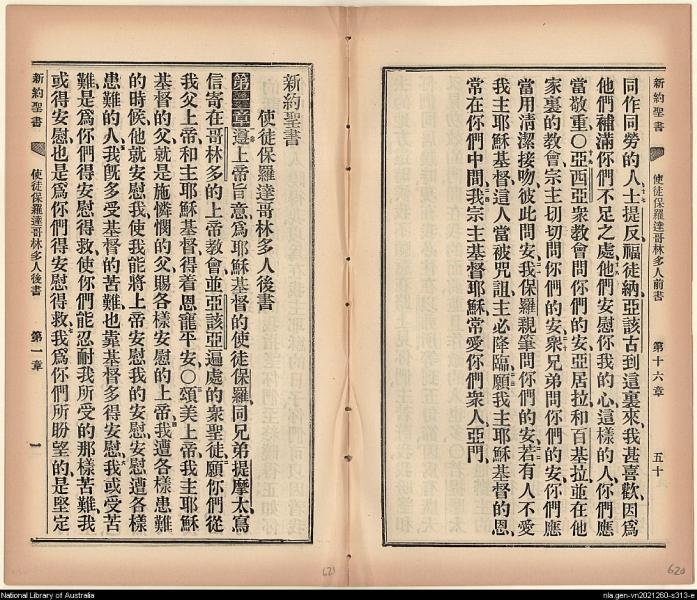 新約聖書 使徒保羅達哥林多人前書 第十六章 五十
同作同勞的人士提反福徒納亞該古到這裏來我甚喜歡因爲
他們補滿你們不足之處他們安慰你我的心這樣的人你們應
當敬重〇亞西亞衆教會問你們的安亞居拉和百基拉並在他
家裏的教會宗主切切問你們的安衆兄弟問你們的安你們應
當用清潔接吻彼此問安我保羅親筆問你們的安若有人不愛
我主耶穌基督這人當被咒詛主必降臨願我主耶穌基督的恩
常在你們中間我宗主基督耶穌常愛你們衆人亞門
新約聖書
使徒保羅達哥林多人後書
第一章遵上帝旨意爲耶穌基督的使徒保羅同兄弟提摩太寫
信寄在哥林多的上帝教會並亞該亞遍處的衆聖徒願你們從
我父上帝和主耶穌基督得着恩寵平安〇頌美上帝我主耶穌
基督的父就是施憐憫的父賜各樣安慰的上帝我遭各樣患難
的時候他就安慰我使我能將上帝安慰我的安慰安慰遭各樣
患難的人我旣多受基督的苦難也靠基督多得安慰我或受苦
難是爲你們得安慰得救使你們能忍耐我所受的那樣苦難我
或得安慰也是爲你們得安慰得救我爲你們所盼望的是堅定
新約聖書 使徒保羅達哥林多人後書 第一章 一
621
620
National Library of Australia
nla.gen-vn2021260-s313-e